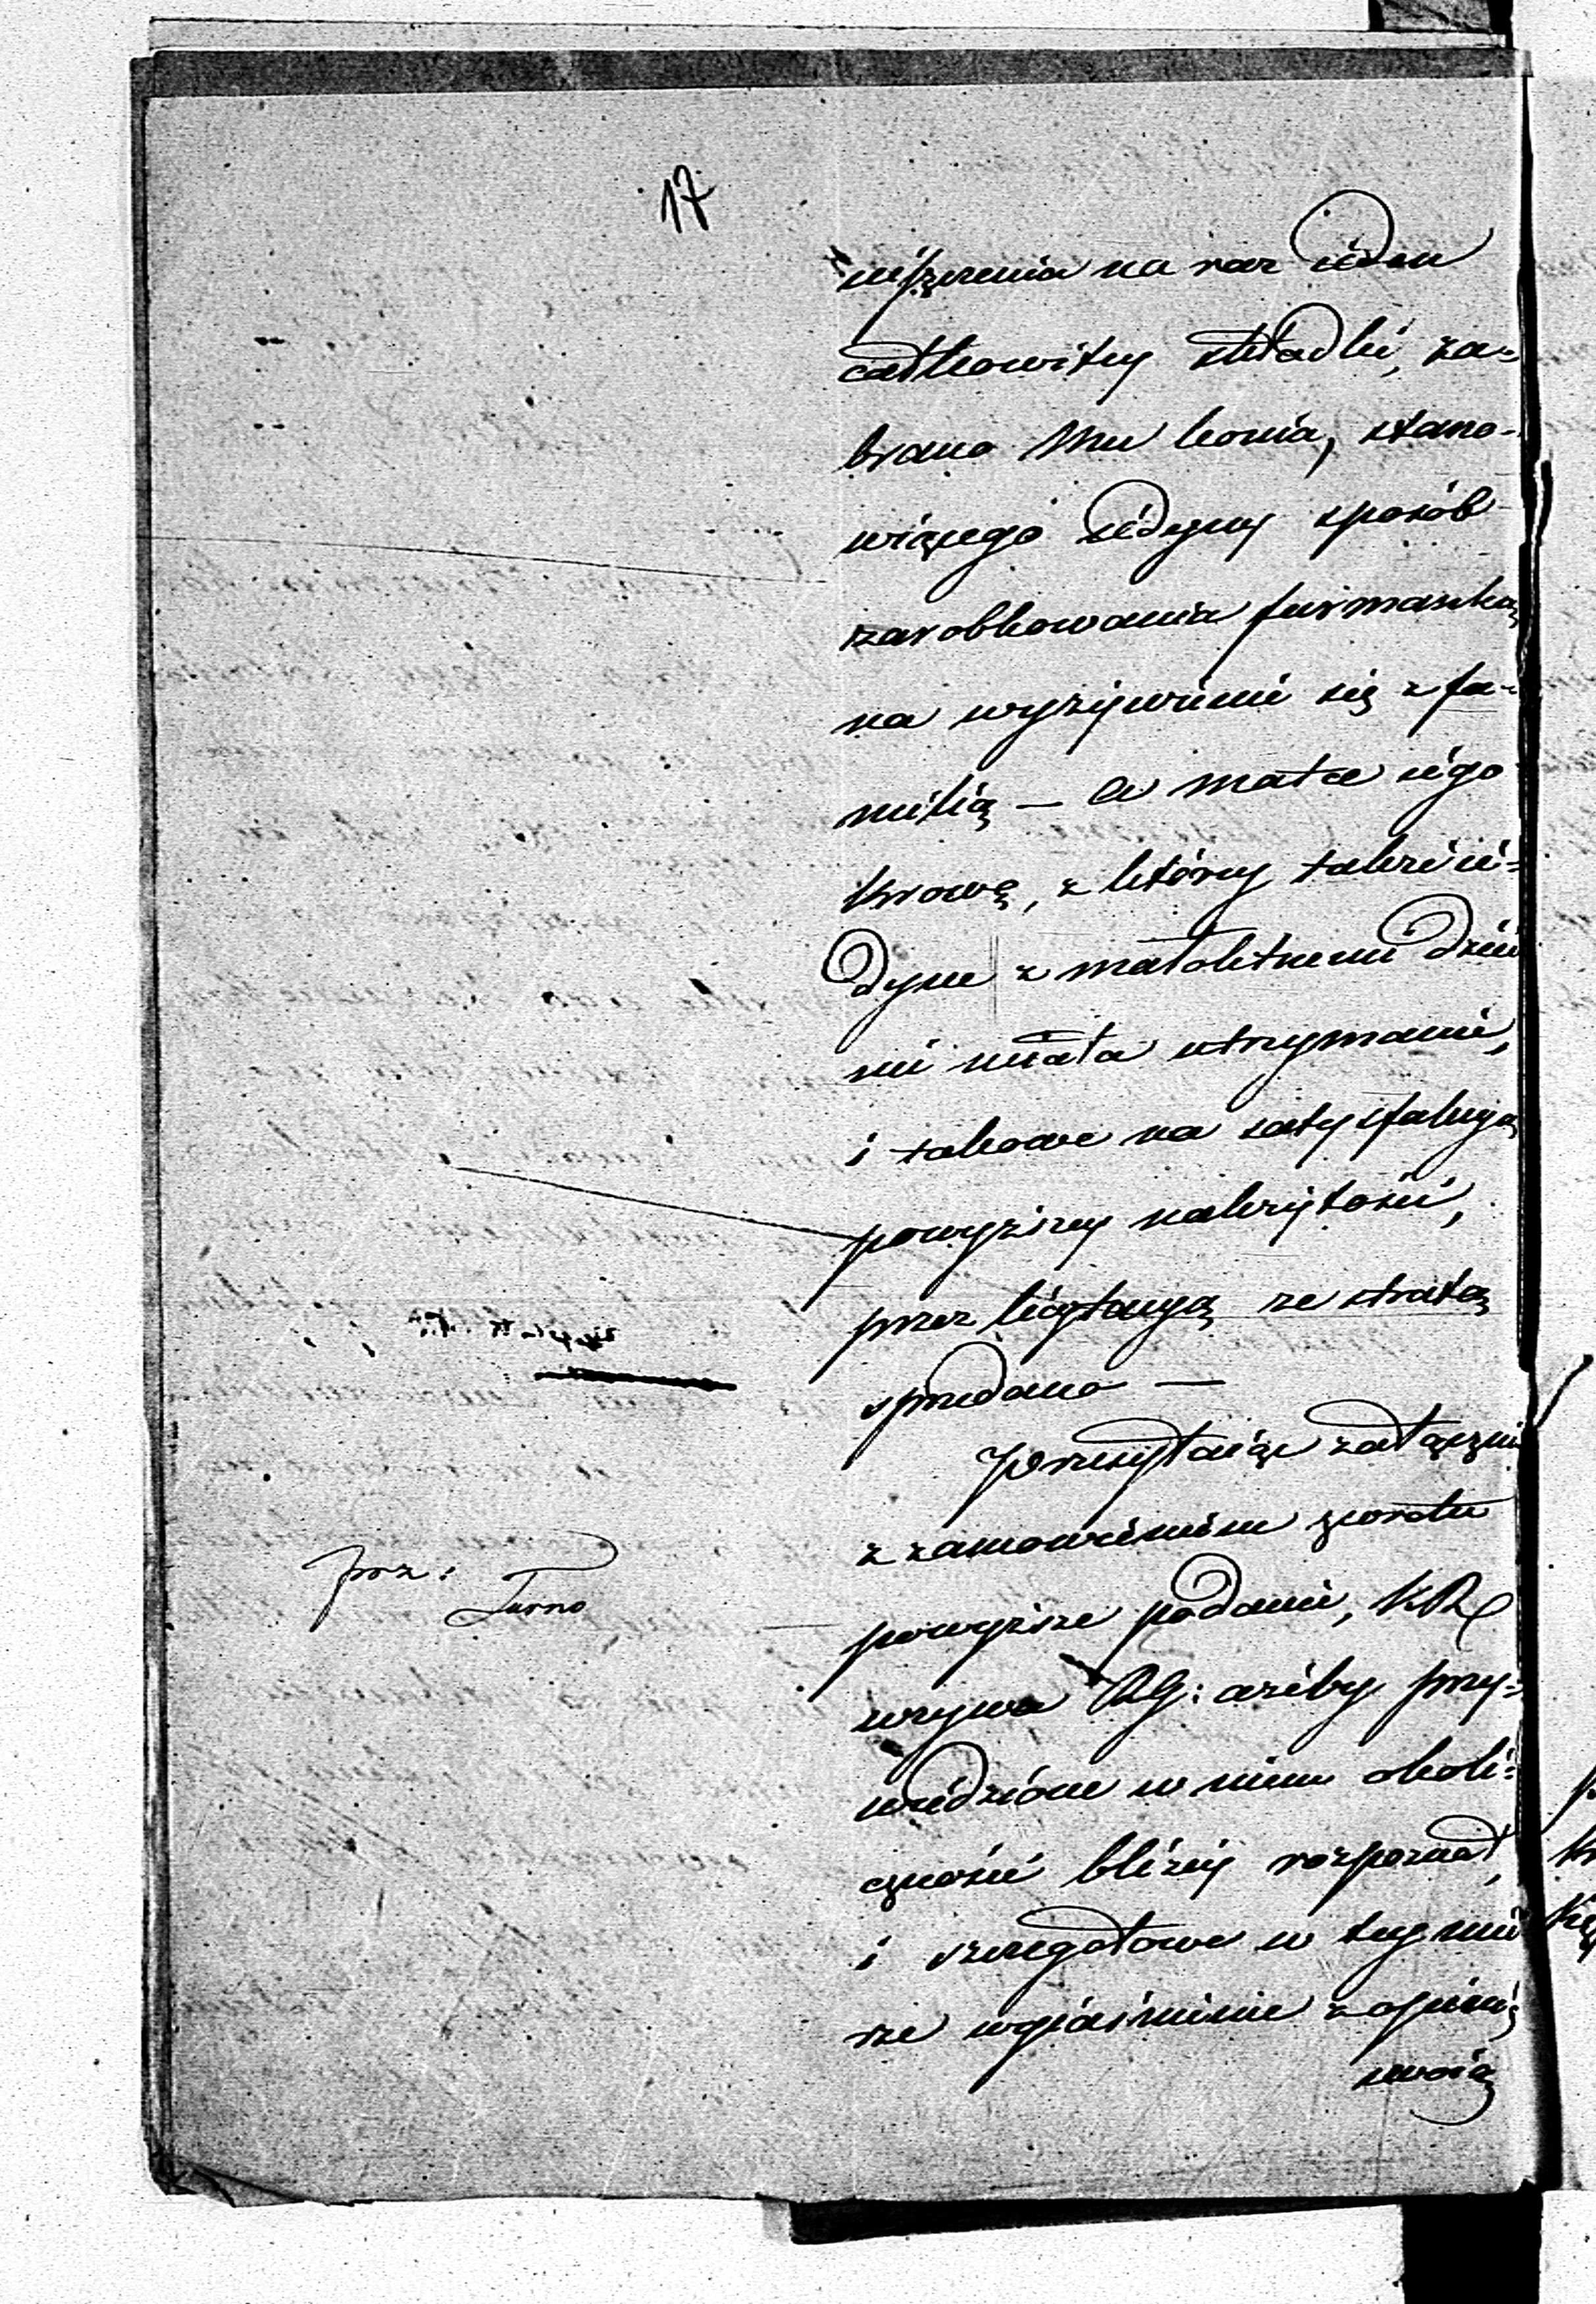 17
iszczenia na raz ieden
całkowitey składki, za=
brano Mu konia, stano-
wiącego iedyny sposób
zarobkowania furmanką
na wyżywienie się z fa-
milią — a matce iego
krowę, z którey także ie=
dyne z małoletniemi dzieć
mi miała utrzymanie,
i takowe na satysfakcyą
powyższey należytości,
przez licytacyą ze stratą
sprzedano —
Przesyłaiąc załącznie
z zamówieniem zwrotu
powyższe podanie, KR
wzywa RG: ażeby przy=
wiedzione w niem okoli=
czności bliżey rozpoznał,
i szczegółowe w tey mie
rze wyiaśnienie z opinią
swoią
prz:
Turno